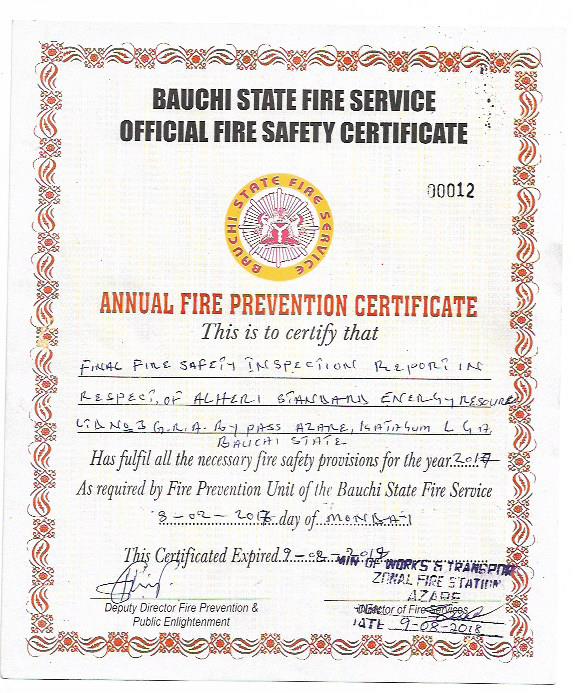 BAUCHI STATE FIRE SERVICE
OFFICIAL FIRE SAFETY CERTIFICATE
00012
BAUCHI STATE FIRE SERVICE
ANNUAL FIRE PREVENTION CERTIFICATE
This is to certify that
FINAL FIRE SAFETY INSPECTION REPORT IN
RESPECT, OF ALHERI STANDARD ENERGY RESOURCE
G.R.A. BY PASS AZARE, KATAGUM L G A,
BAUCHI STATE
Has fulfil all the necessary fire safety provisions for the year 2017
As required by Fire Prevention Unit of the Bauchi State Fire Service
8-02-2017 day of MONDAY
This Certificated Expired 9-02-
MIN OF WORKS & TRANSPOR
ZONAL FIRE STATION
AZARE
Deputy Director Fire Prevention &
Public Enlightenment
Director of Fire Services
9-08-2018